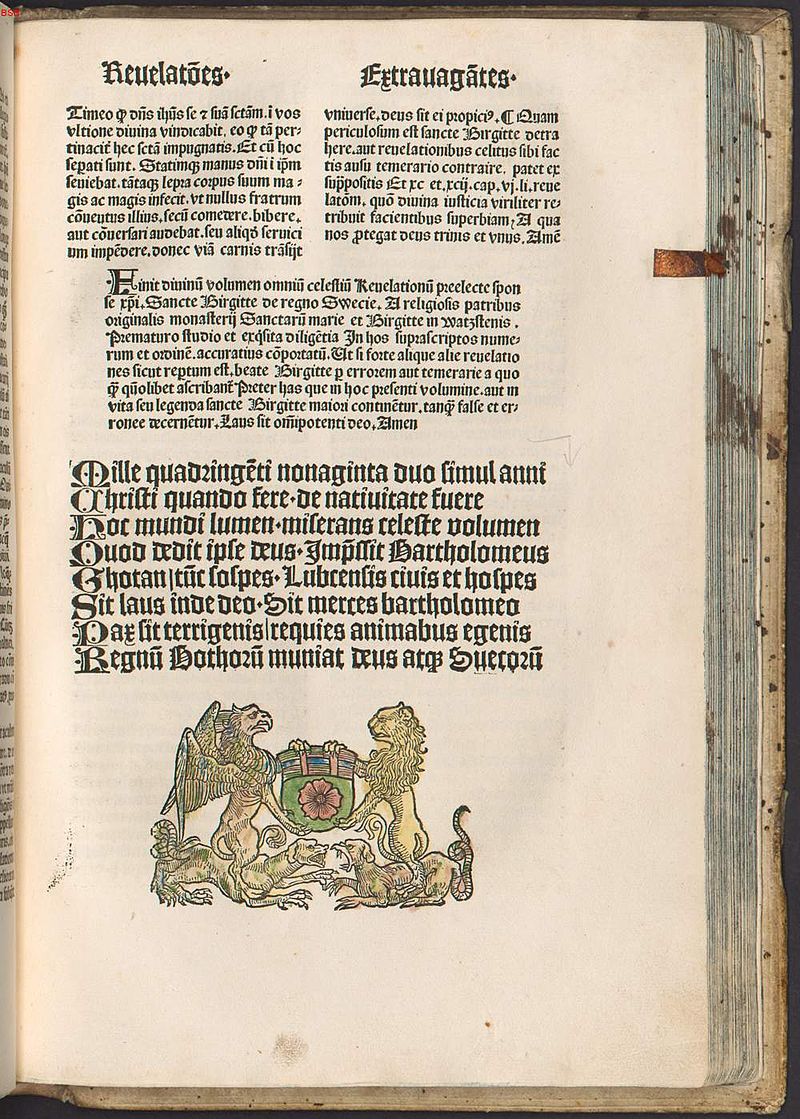 BSB
Reuelatōes·
Extrauagātes·
Timeo ꝙ dn̄s ih̄us se ⁊ suā sctām. ī vos
vltione diuina vindicabit, eo ꝙ tā per-
tinacit̄ hec sctā impugnatis. Et cū hoc
sepati sunt. Statimqꝫ manus dn̄i ī ip̄m
seuiebat. tātaqꝫ lepra corpus suum ma-
gis ac magis infecit. vt nullus fratrum
cōuentus illius, secū comedere. bibere.
aut cōuersari audebat. seu aliqd̄ seruici
um impēdere. donec viā carnis trāsijt
vniuerse. deus sit ei propiciꝰ. ¶ Quam
periculosum est sancte Birgitte detra
here. aut reuelationibus celitus sibi fac
tis ausu temerario contraire. patet ex
sup̄positis Et xc et. xcij. cap. vj. li. reue
latōm. quō diuina iusticia viriliter re-
tribuit facientibus superbiam, A qua
nos ꝓtegat deus trinus et vnus. Amē
Finit diuinū volumen omniū celestiū Reuelationū preelecte spon
se xp̄i. Sancte Birgitte de regno Swecie. A religiosis patribus
originalis monasterij Sanctarū marie et Birgitte in watzstenis.
Prematuro studio et exq̄sita diligētia In hos suprascriptos nume-
rum et ordinē. accuratius cōportatū. Ut si forte alique alie reuelatio
nes sicut reptum est. beate Birgitte ꝑ errorem aut temerarie a quo
qꝫ qūolibet ascribant̄ Preter has que in hoc presenti volumine. aut in
vita seu legenda sancte Birgitte maiori continētur. tanqꝫ false et er-
ronee decernētur. Laus sit om̄ipotenti deo. Amen
Mille quadringēti nonaginta duo simul anni
Christi quando fere· de natiuitate fuere
Hoc mundi lumen· miserans celeste volumen
Quod dedit ipse deus· Imp̄ssit Bartholomeus
Ghotan| tūc sospes· Lubcensis ciuis et hospes
Sit laus inde deo· Sit merces bartholomeo
Pax sit terrigenis| requies animabus egenis
Regnū Gothorū muniat deus atqꝫ Suecorū